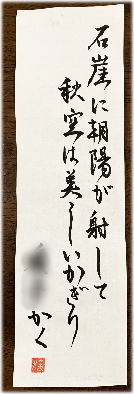 石崖に朝陽が射して
秋空は美しいかぎり
かく